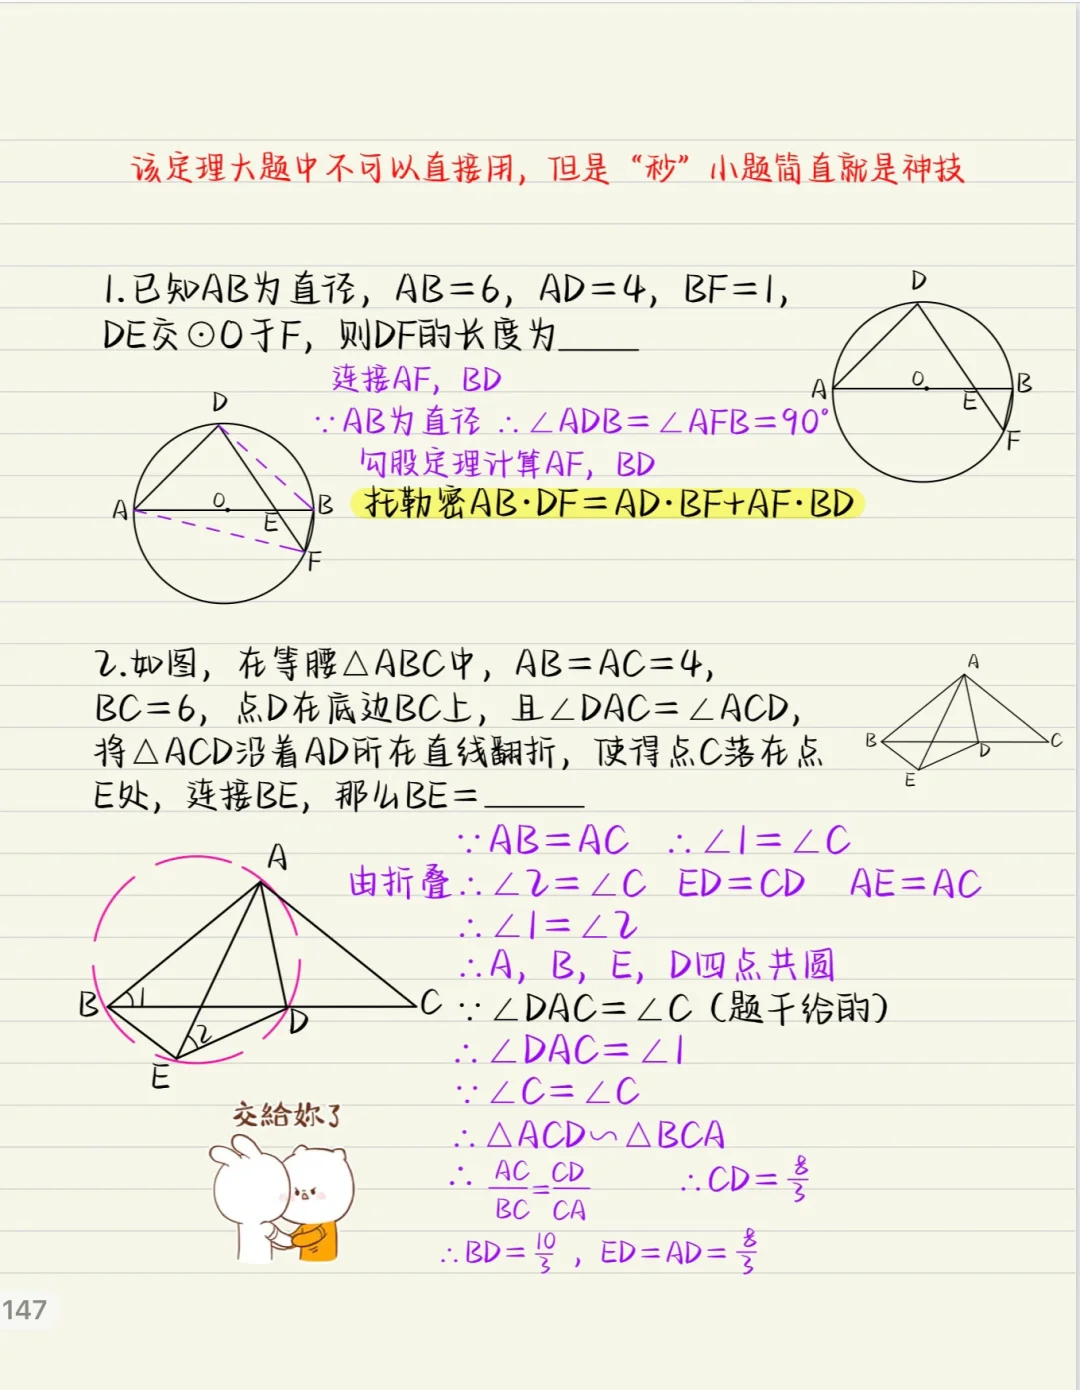 该定理大题中不可以直接用，但是“秒”小题简直就是神技
1.已知AB为直径，AB=6，AD=4，BF=1，
DE交⊙O于F，则DF的长度为_____
D
A
O
B
E
F
连接AF，BD
∵AB为直径 ∴∠ADB=∠AFB=90°
勾股定理计算AF，BD
托勒密AB·DF=AD·BF+AF·BD
D
A
O
B
E
F
2.如图，在等腰△ABC中，AB=AC=4，
BC=6，点D在底边BC上，且∠DAC=∠ACD，
将△ACD沿着AD所在直线翻折，使得点C落在点
E处，连接BE，那么BE=______
A
B
D
C
E
∵AB=AC ∴∠1=∠C
由折叠∴∠2=∠C ED=CD AE=AC
∴∠1=∠2
∴A，B，E，D四点共圆
∵∠DAC=∠C（题干给的）
∴∠DAC=∠1
∵∠C=∠C
∴△ACD∽△BCA
∴AC/BC=CD/CA ∴CD=8/3
∴BD=10/3，ED=AD=8/3
A
B
1
C
2
D
E
交給妳了
147